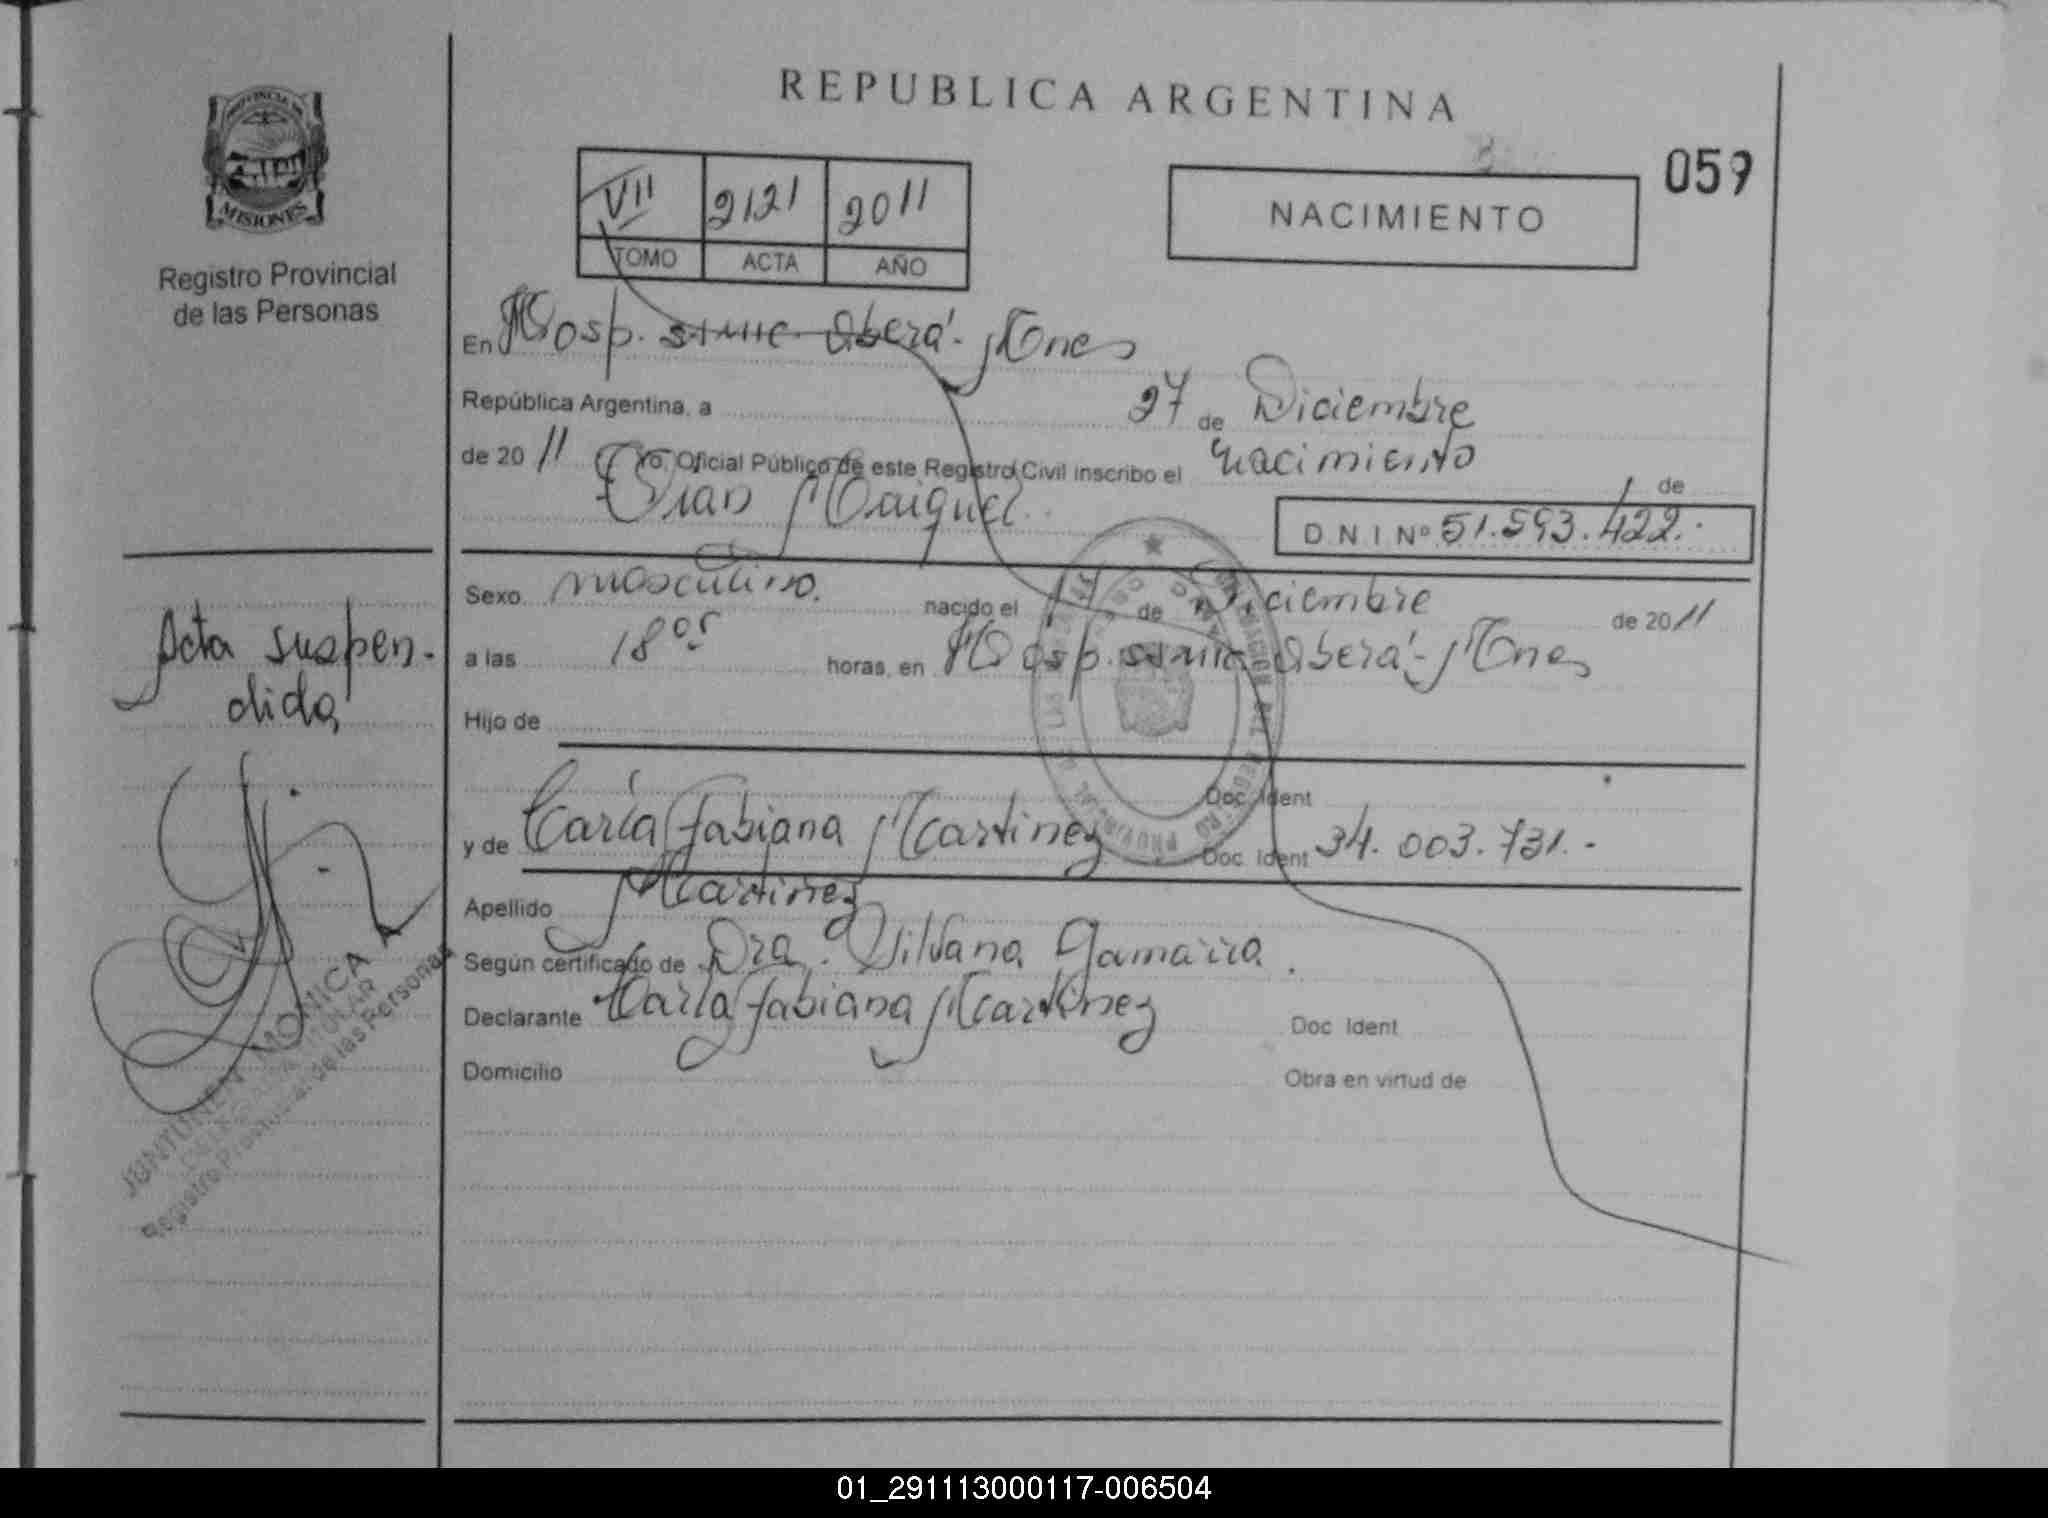 REPUBLICA ARGENTINA
PROVINCIA DE
MISIONES
Registro Provincial
de las Personas
VII 2121 2011
TOMO ACTA AÑO
NACIMIENTO
059
En Hosp. Oberá - Mnes
República Argentina, a 27 de Diciembre
de 20 11 Yo, Oficial Público de este Registro Civil inscribo el nacimiento
de
Maiquel
D.N.I Nº 51.593.422.
Sexo masculino. nacido el de Diciembre de 2011
a las 18 05 horas, en Hosp. Oberá - Mnes
Hijo de
Doc. Ident
y de Carla Fabiana Martinez Doc. Ident 34.003.731.-
Apellido Martinez
Según certificado de Dra. Silvana Gamarra.
Declarante Carla Fabiana Martinez Doc Ident
Domicilio Obra en virtud de
Acta suspen-
dida
MONICA
TITULAR
Registro Provincial de las Personas
01_291113000117-006504